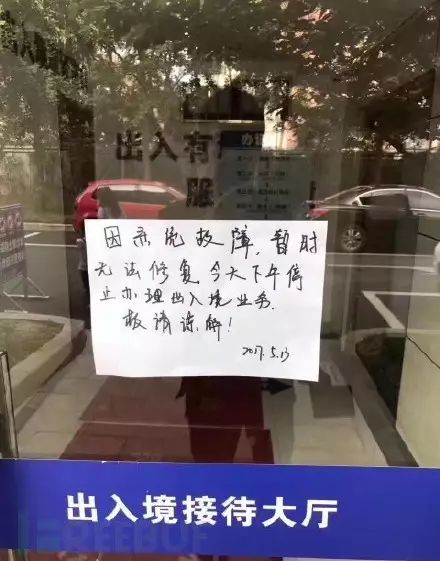 出入有
办证
因系统故障，暂时
无法修复，今天下午停
止办理出入境业务.
敬请谅解！
2017.5.13
出入境接待大厅
FREEBUF